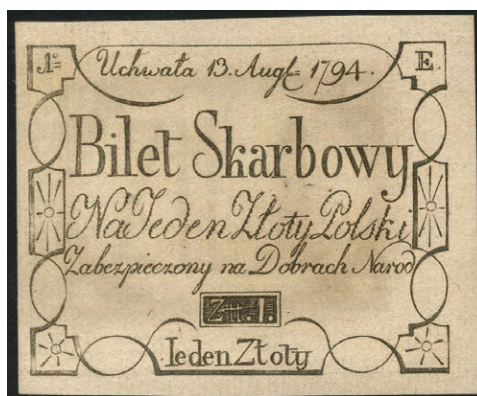 A = Uchwała 13. Augſ = 1794. E.
Bilet Skarbowy
Na Jeden Złoty Polski
Zabezpieczony na Dobrach Narod
Złł.1.
Ieden Złoty